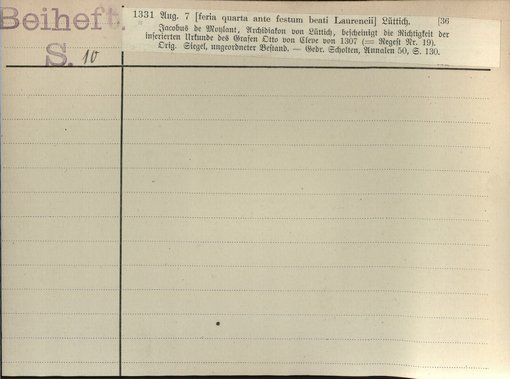 Beiheft.
S. 10
1331 Aug. 7 [feria quarta ante festum beati Laurencii] Lüttich. [36
Jacobus de Moylant, Archidiakon von Lüttich, bescheinigt die Richtigkeit der
inserierten Urkunde des Grafen Otto von Cleve von 1307 (= Regest Nr. 19).
Orig. Siegel, ungeordneter Bestand. — Gedr. Scholten, Annalen 50, S. 130.